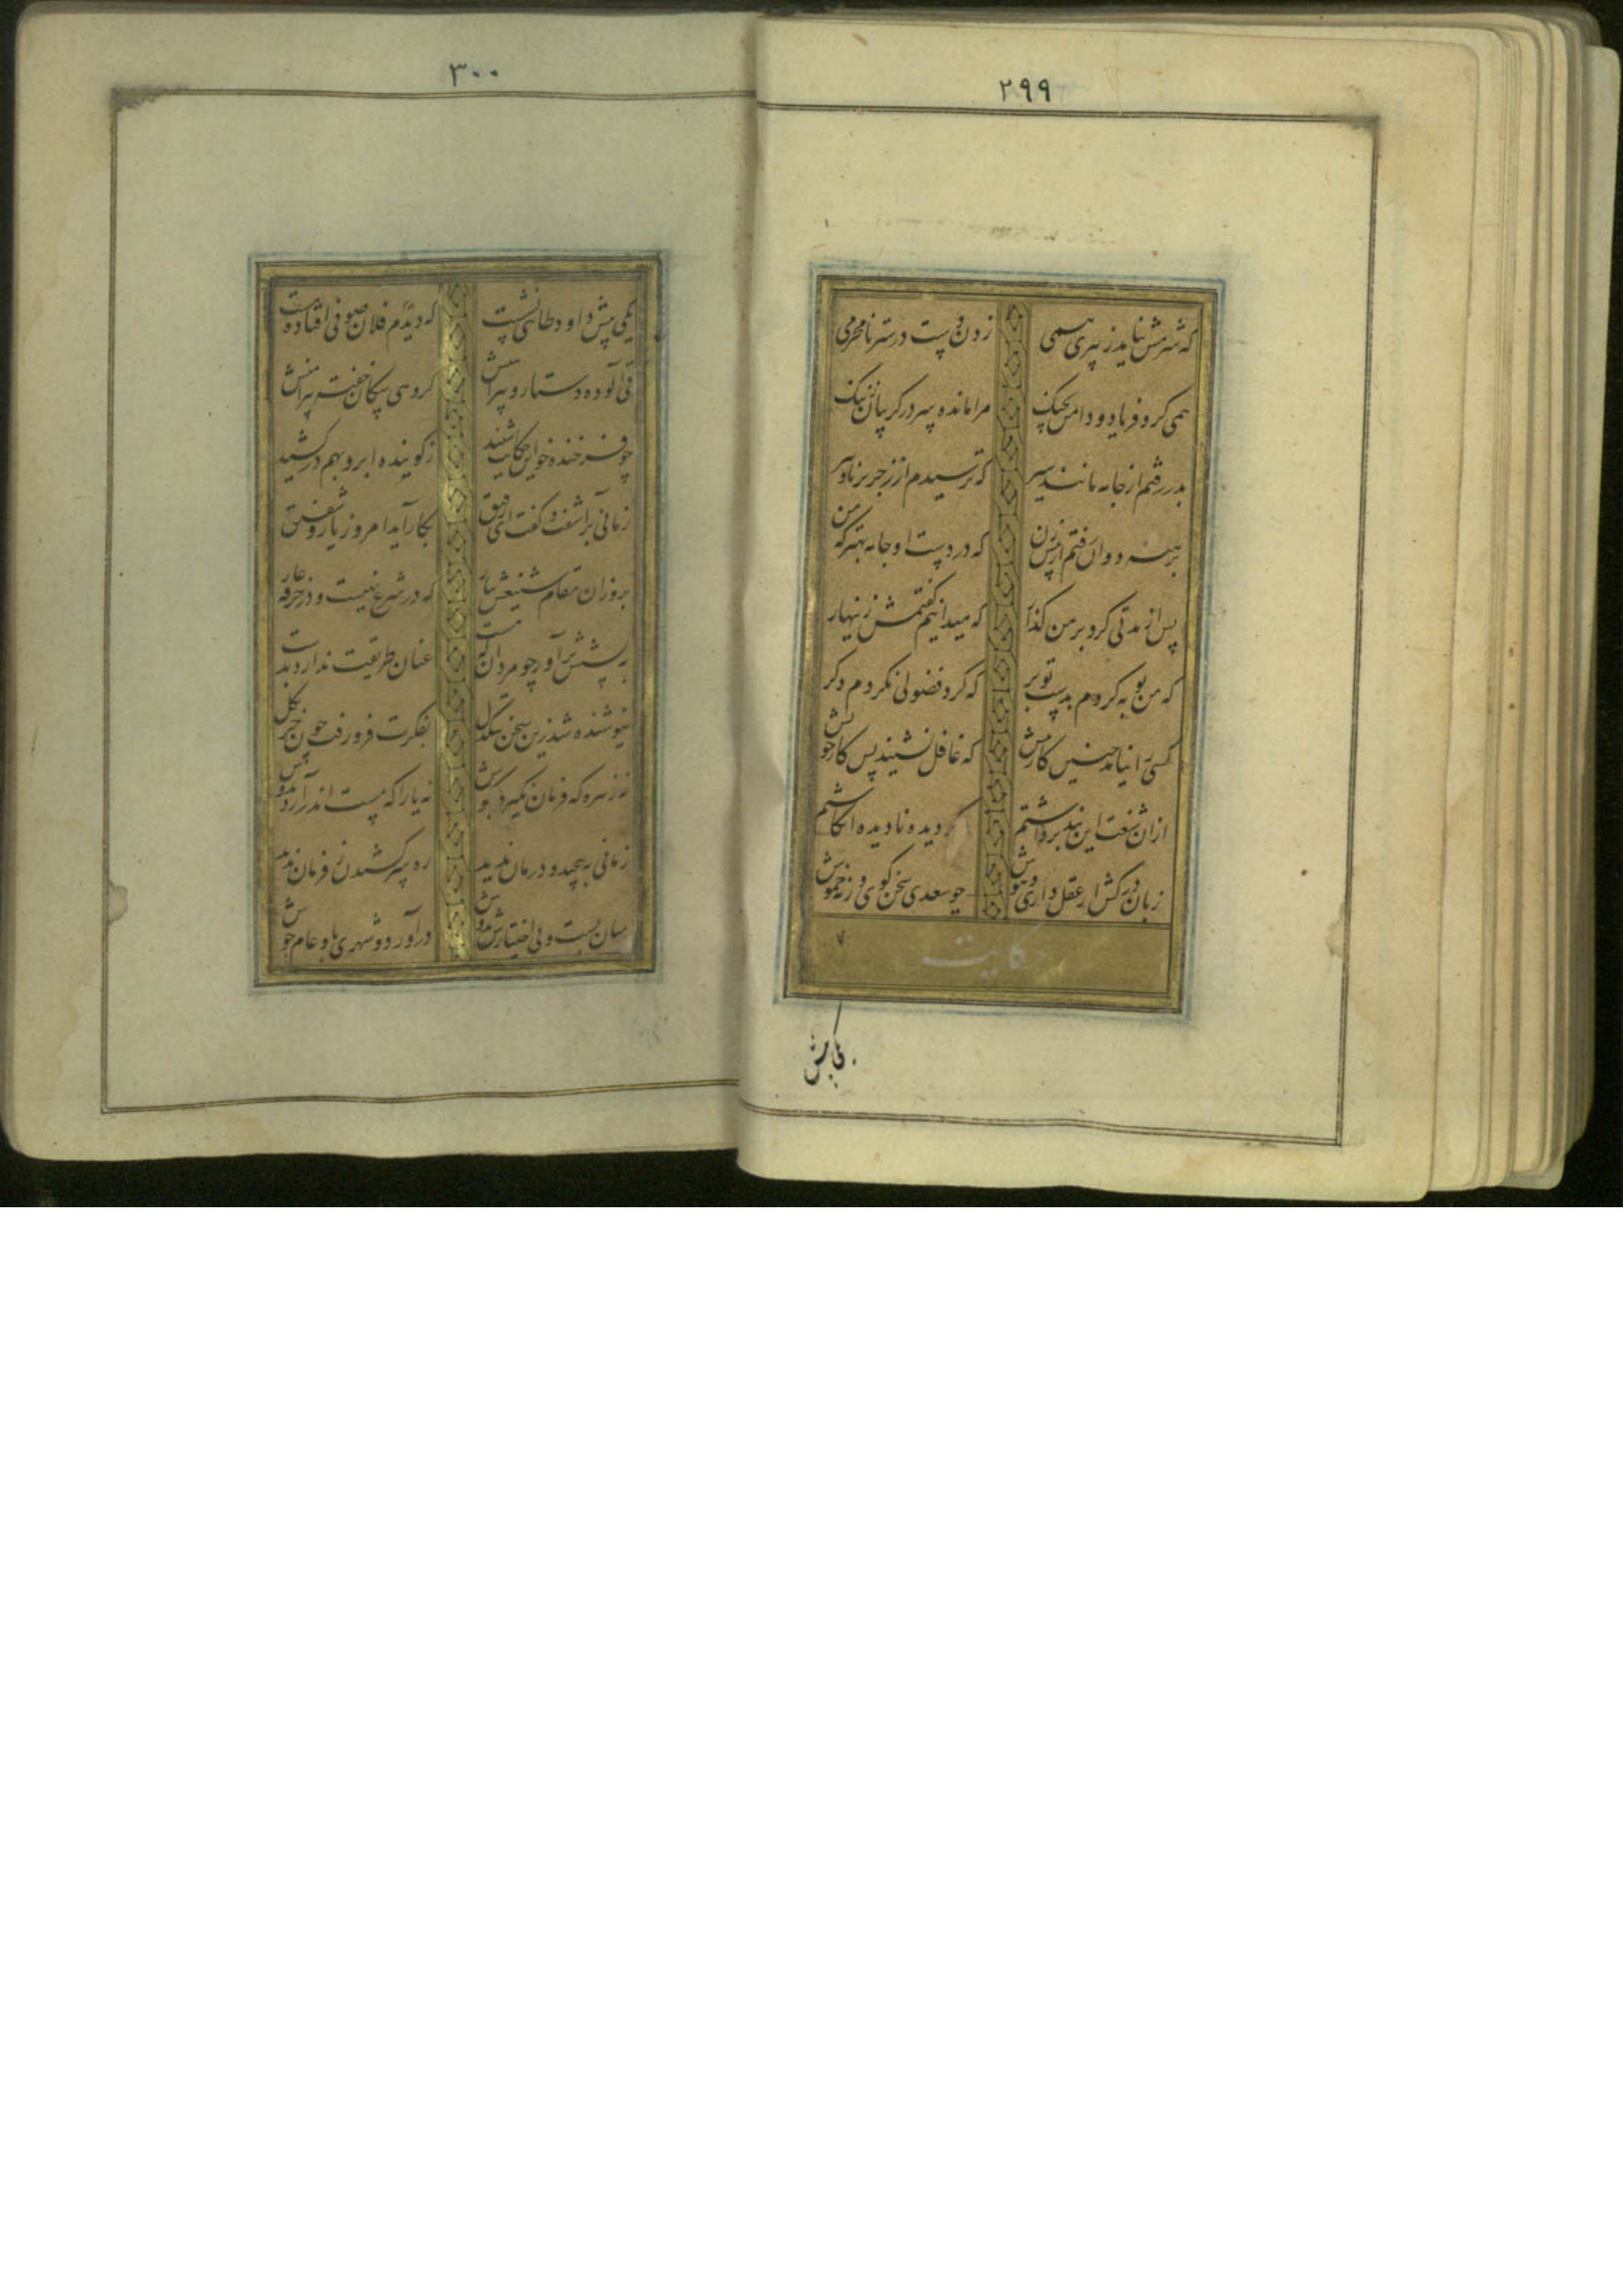 ۲۹۹
که شرمش نیاید ز پیری همی زدن دست در ستر نامحرمی
همی کرد فریاد و دامن بچنگ مرا مانده سر در گریبان ز ننگ
بدر رفتم از جامه مانند سیر که ترسیدم از زجر برنا و پیر
برهنه دوان رفتم از پیش زن که در دست او جامه بهتر که من
پس از مدتی کرد بر من گذار که میدانیم گفتمش زینهار
که من توبه کردم بدست تو بر که گرد فضولی نگردم دگر
کسی را نیاید چنین کار پیش که عاقل نشیند پس کار خویش
ازان شنعت این پند برداشتم دگر دیده نادیده انگاشتم
زبان درکش ار عقل داری و هوش چو سعدی سخن گوی ورنه خموش
حکایت
۳۰۰
یکی پیش داود طائی نشست که دیدم فلان صوفی افتاده مست
قی آلوده دستار و پیراهنش گروهی سگان خفته پیرامنش
چو فرخنده خوی این حکایت شنید ز گوینده ابرو بهم درکشید
زمانی برآشفت و گفت ای رفیق بکار آید امروز یار شفیق
برو زان مقام شنیعش بیار که در شرع نهیست و در خرقه عار
به پشتش برآور چو مردان که مست عنان طریقت ندارد بدست
نیوشنده شد زین سخن تنگدل بفکرت فرو رفت چون خر بگل
نه زهره که فرمان نگیرد بگوش نه یارا که مست اندر آرد بدوش
زمانی بپیچید و درمان ندید ره سر کشیدن ز فرمان ندید
میان بست و بی اختیارش بدوش درآورد و شهری باو عام جوش